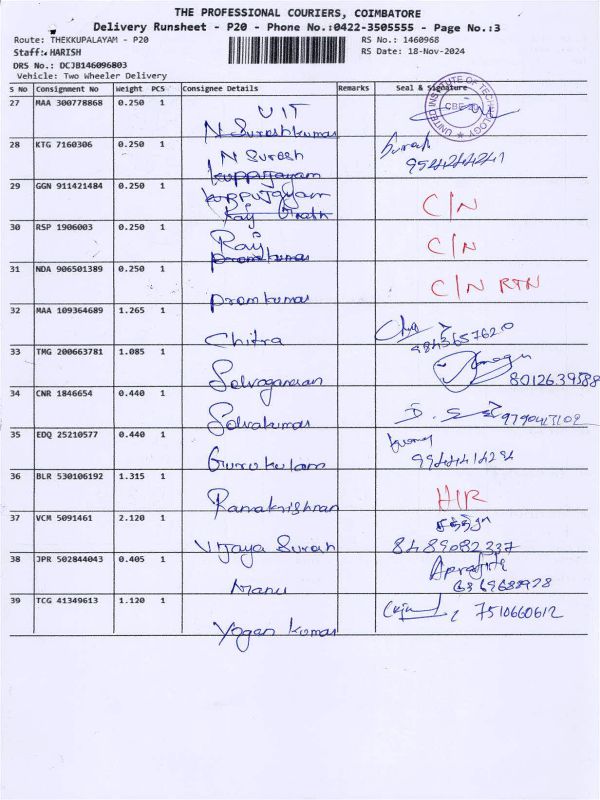 THE PROFESSIONAL COURIERS, COIMBATORE
Delivery Runsheet - P20 - Phone No.:0422-3505555 - Page No.:3
Route: THEKKUPALAYAM - P20 RS No.: 1460968
Staff: HARISH RS Date: 18-Nov-2024
DRS No.: DCJB146096803
Vehicle: Two Wheeler Delivery
S No Consignment No Weight PCS Consignee Details Remarks Seal & Signature
27 MAA 300778868 0.250 1 UIT
UNITED INSTITUTE OF TECHNOLOGY
N Sureshkumar
28 KTG 7160306 0.250 1 N Suresh Suresh
kuppujayam
29 GGN 911421484 0.250 1 kuppujayam C/N
30 RSP 1906003 0.250 1 Raj C/N
Premkumar
31 NDA 906501389 0.250 1 C/N RTN
Premkumar
32 MAA 109364689 1.265 1 Chitra
33 TMG 200663781 1.085 1 8012639588
34 CNR 1846654 0.440 1 Selvakumar
35 EDQ 25210577 0.440 1 Gurukulam
36 BLR 530106192 1.315 1 Ramakrishnan
37 VCM 5091461 2.120 1 Vijaya Suresh 8489082337
38 JPR 502844043 0.405 1 Manu
39 TCG 41349613 1.120 1 Yogan Kumar 7510660612